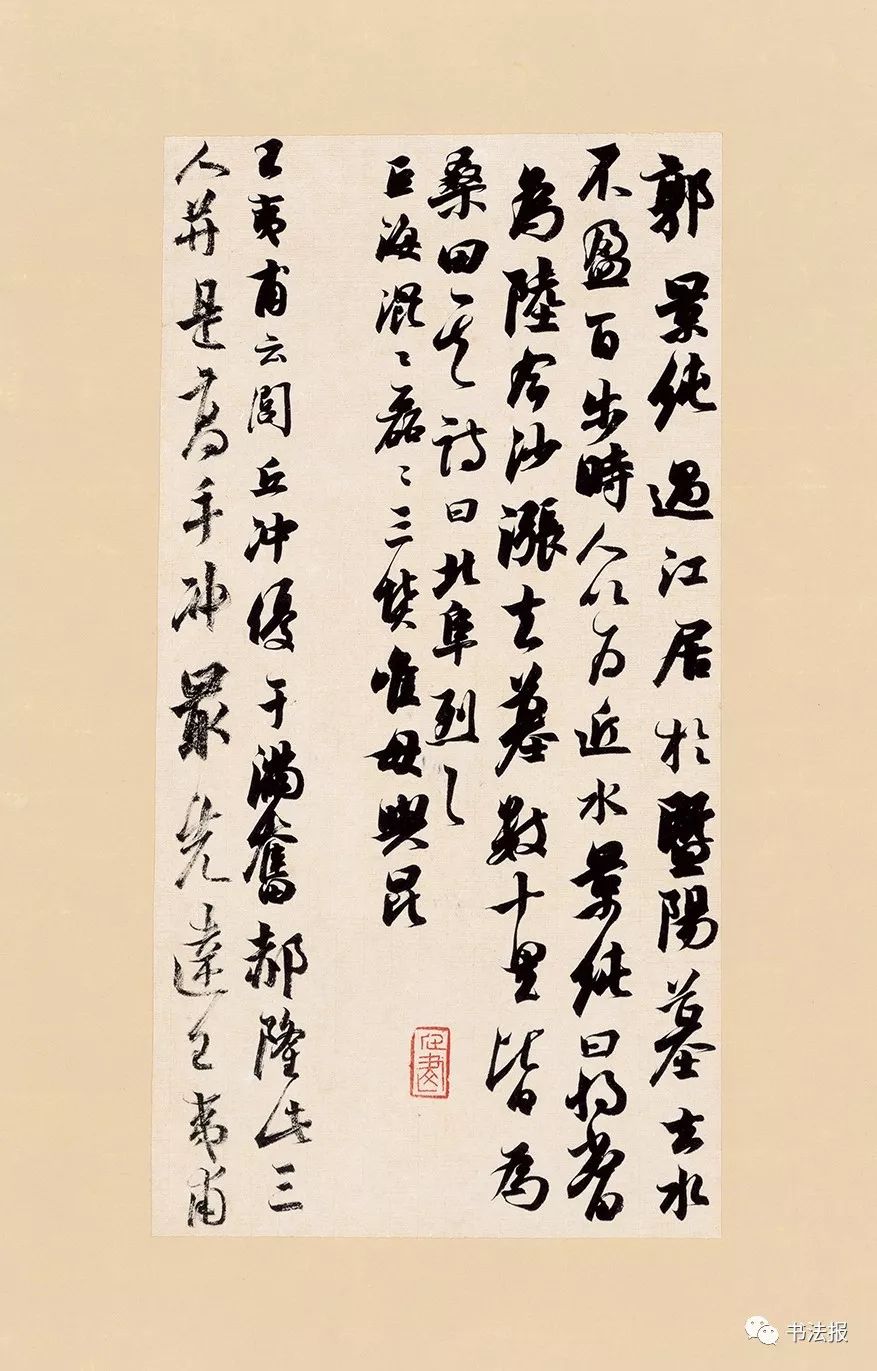 郭景純過江居於暨陽墓去水
不盈百步時人以为近水景純曰將當
為陸今沙漲去墓數十里皆為
桑田其詩曰北阜列〻
巨海混〻磊〻三墳唯母與昆
王夷甫云閭丘冲優于滿奮郝隆此三
人并是高才冲最先達王夷甫
书法报